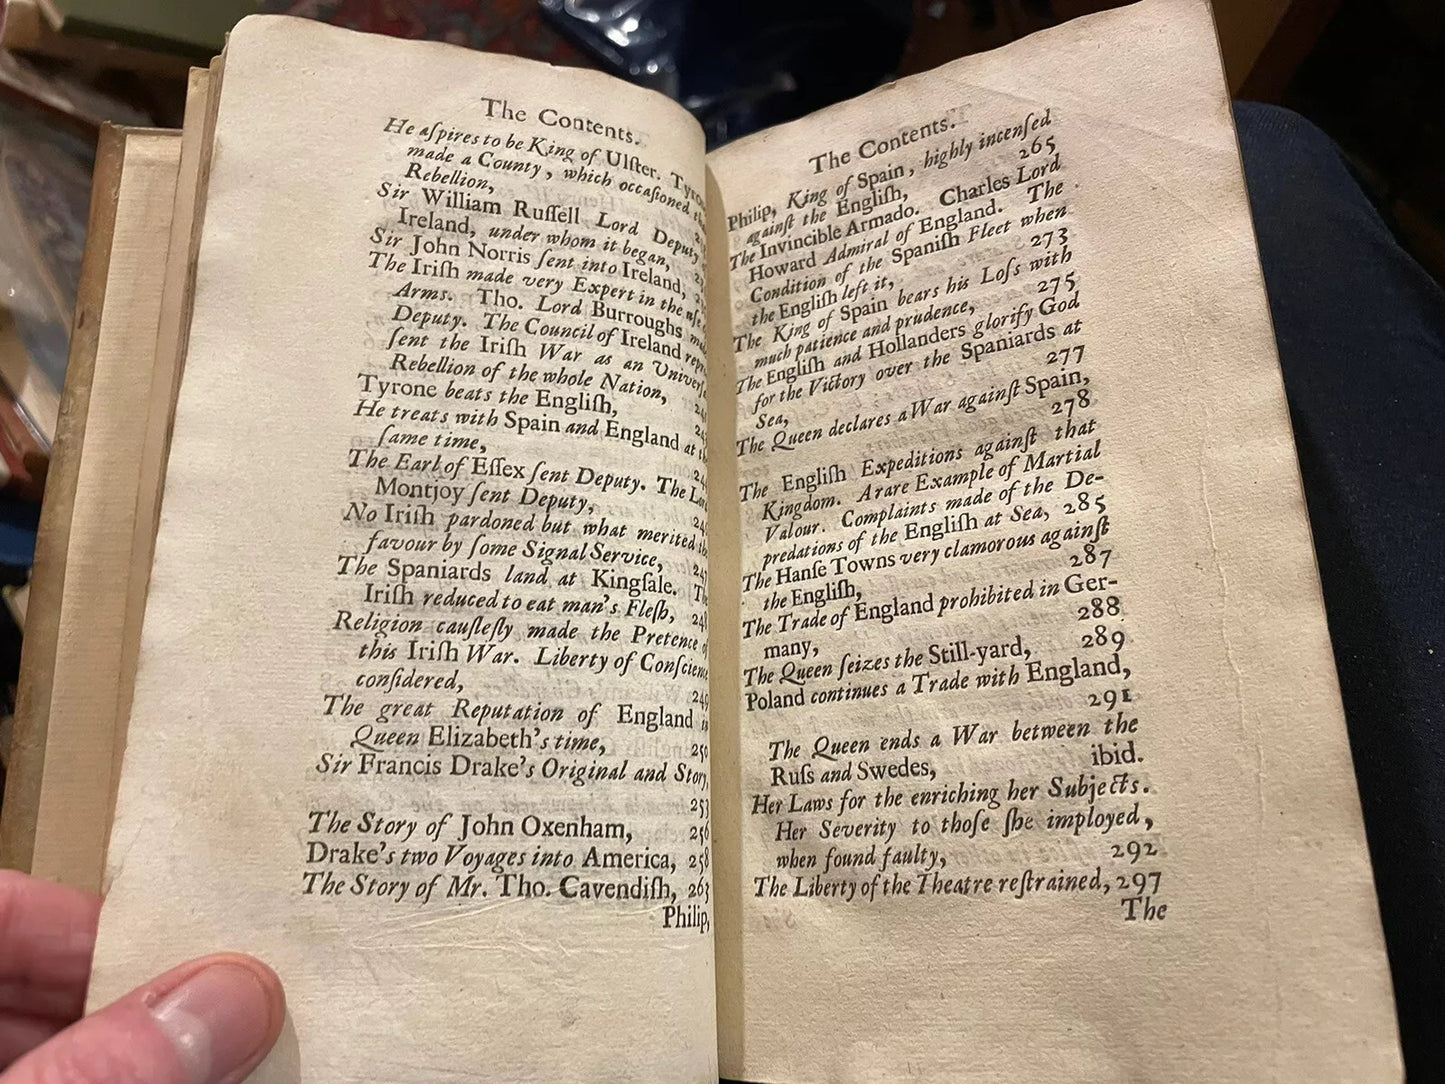 The Contents.
He aſpires to be King of Ulſter.
made a County, which occaſioned
Rebellion,
Sir William Ruſſell Lord Deputy
Ireland, under whom it began,
Sir John Norris ſent into Ireland,
The Iriſh made very Expert in the uſe
Arms. Tho. Lord Burroughs
Deputy. The Council of Ireland
ſent the Iriſh War as an
Rebellion of the whole Nation,
Tyrone beats the Engliſh,
He treats with Spain and England at
ſame time,
The Earl of Eſſex ſent Deputy. The
Montjoy ſent Deputy,
No Iriſh pardoned but what merited
favour by ſome Signal Service, 247
The Spaniards land at Kingſale.
Iriſh reduced to eat man's Fleſh,
Religion cauſleſly made the Pretence
this Iriſh War. Liberty of
conſidered, 249
The great Reputation of England
Queen Elizabeth's time, 250
Sir Francis Drake's Original and Story,
253
The Story of John Oxenham, 256
Drake's two Voyages into America, 258
The Story of Mr. Tho. Cavendiſh, 263
Philip,
The Contents.
Philip, King of Spain, highly incenſed
againſt the Engliſh, 265
The Invincible Armado. Charles Lord
Howard Admiral of England. The
Condition of the Spaniſh Fleet when
the Engliſh left it, 273
The King of Spain bears his Loſs with
much patience and prudence, 275
The Engliſh and Hollanders glorify God
for the Victory over the Spaniards at
Sea, 277
The Queen declares a War againſt Spain,
278
The Engliſh Expeditions againſt that
Kingdom. A rare Example of Martial
Valour. Complaints made of the De-
predations of the Engliſh at Sea, 285
The Hanſe Towns very clamorous againſt
the Engliſh, 287
The Trade of England prohibited in Ger-
many, 288
The Queen ſeizes the Still-yard, 289
Poland continues a Trade with England,
291
The Queen ends a War between the
Ruſs and Swedes, ibid.
Her Laws for the enriching her Subjects.
Her Severity to thoſe ſhe imployed,
when found faulty, 292
The Liberty of the Theatre reſtrained, 297
The